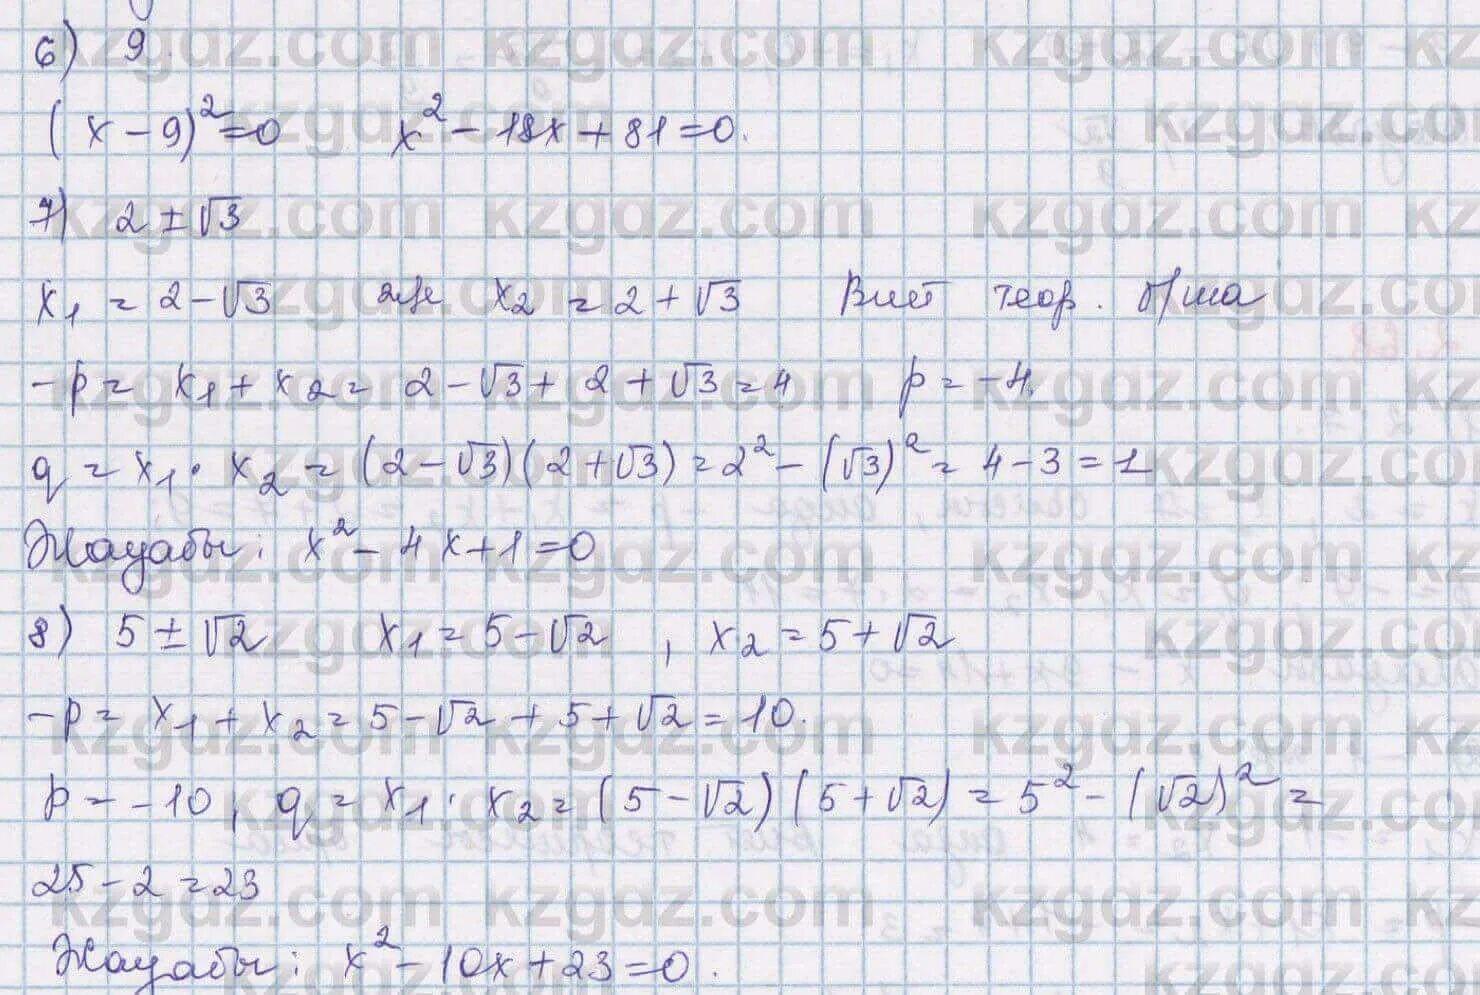 6) 9.
(x-9)²=0 x²-18x+81=0.
7) 2±√3
x₁=2-√3 әр x₂=2+√3 Виет теор. б/ша
-p= x₁+x₂= 2-√3+2+√3=4 p=-4.
q=x₁·x₂=(2-√3)(2+√3)=2²-(√3)²=4-3=1
Жауабы: x²-4x+1=0
8) 5±√2 x₁=5-√2, x₂=5+√2
-p= x₁+x₂=5-√2+5+√2=10.
p=-10, q=x₁·x₂=(5-√2)(5+√2)=5²-(√2)²=
25-2=23
Жауабы: x²-10x+23=0.
kzgdz.com